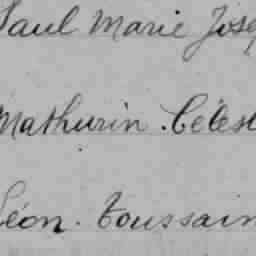 Paul Marie Jose
Mathurin. Celest
Léon. Toussain